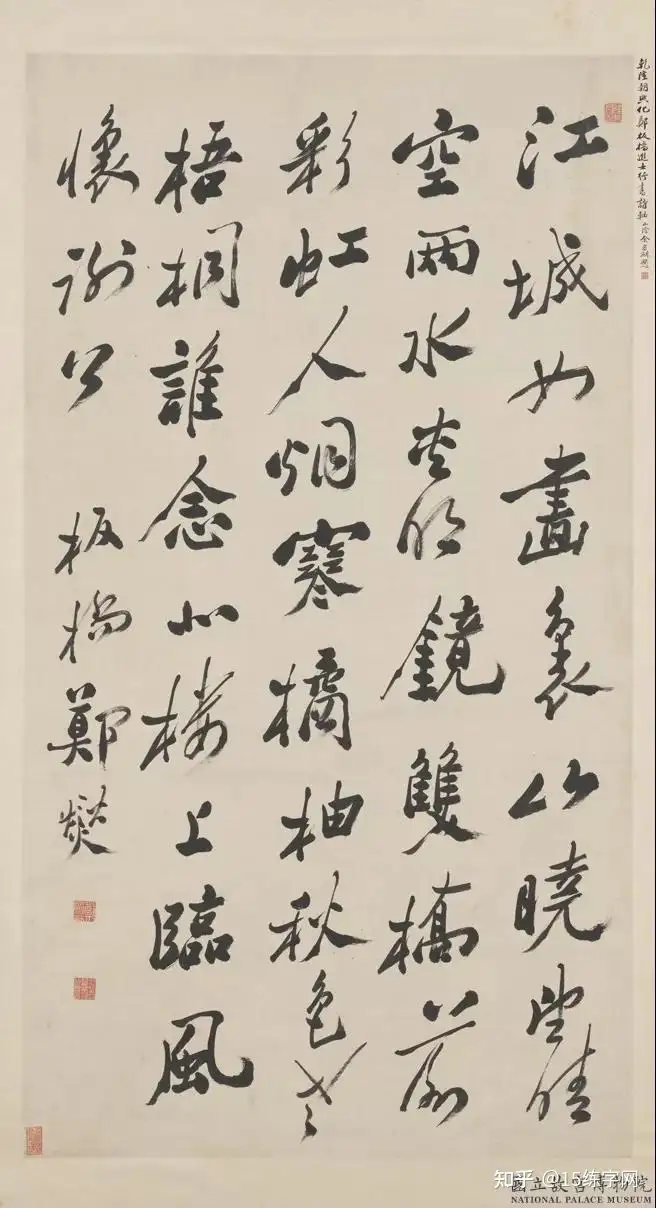 乾隆朝興化鄭板橋進士行書詩軸
江城如畫裏山曉望晴
空兩水夾明鏡雙橋落
彩虹人烟寒橘柚秋色老
梧桐誰念北楼上臨風
懷謝公
板橋鄭燮
知乎 @15练字网
國立故宮博物院
NATIONAL PALACE MUSEUM